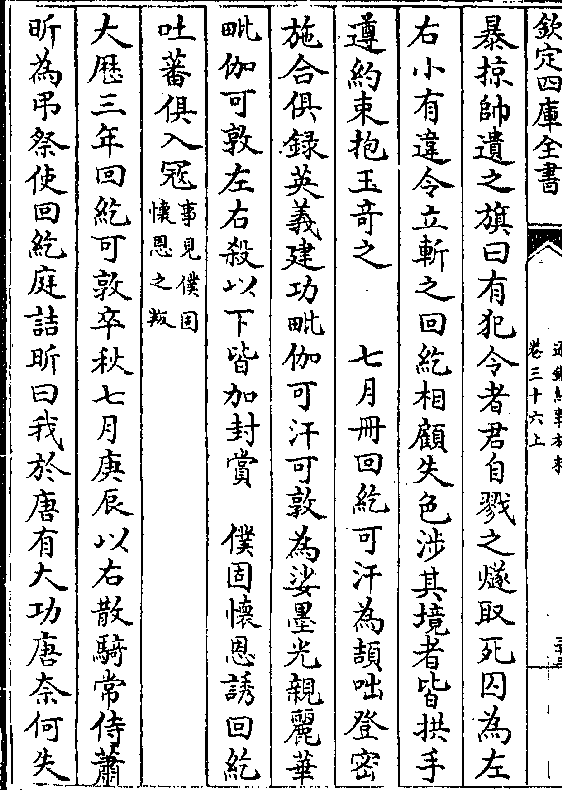 欽定四庫全書
通鑑紀事本末
卷三十六上
暴掠帥遺之旗曰有犯令者君自戮之燧取死囚為左
右小有違令立斬之回紇相顧失色涉其境者皆拱手
遵約束抱玉竒之　　七月冊回紇可汗為頡咄登密
施合俱録英義建功毗伽可汗可敦為娑墨光親麗華
毗伽可敦左右殺以下皆加封賞　僕固懷恩誘回紇
吐蕃俱入冦事見僕固
懷恩之叛
大厯三年回紇可敦卒秋七月庚辰以右散騎常侍蕭
昕為弔祭使回紇庭詰昕曰我於唐有大功唐奈何失